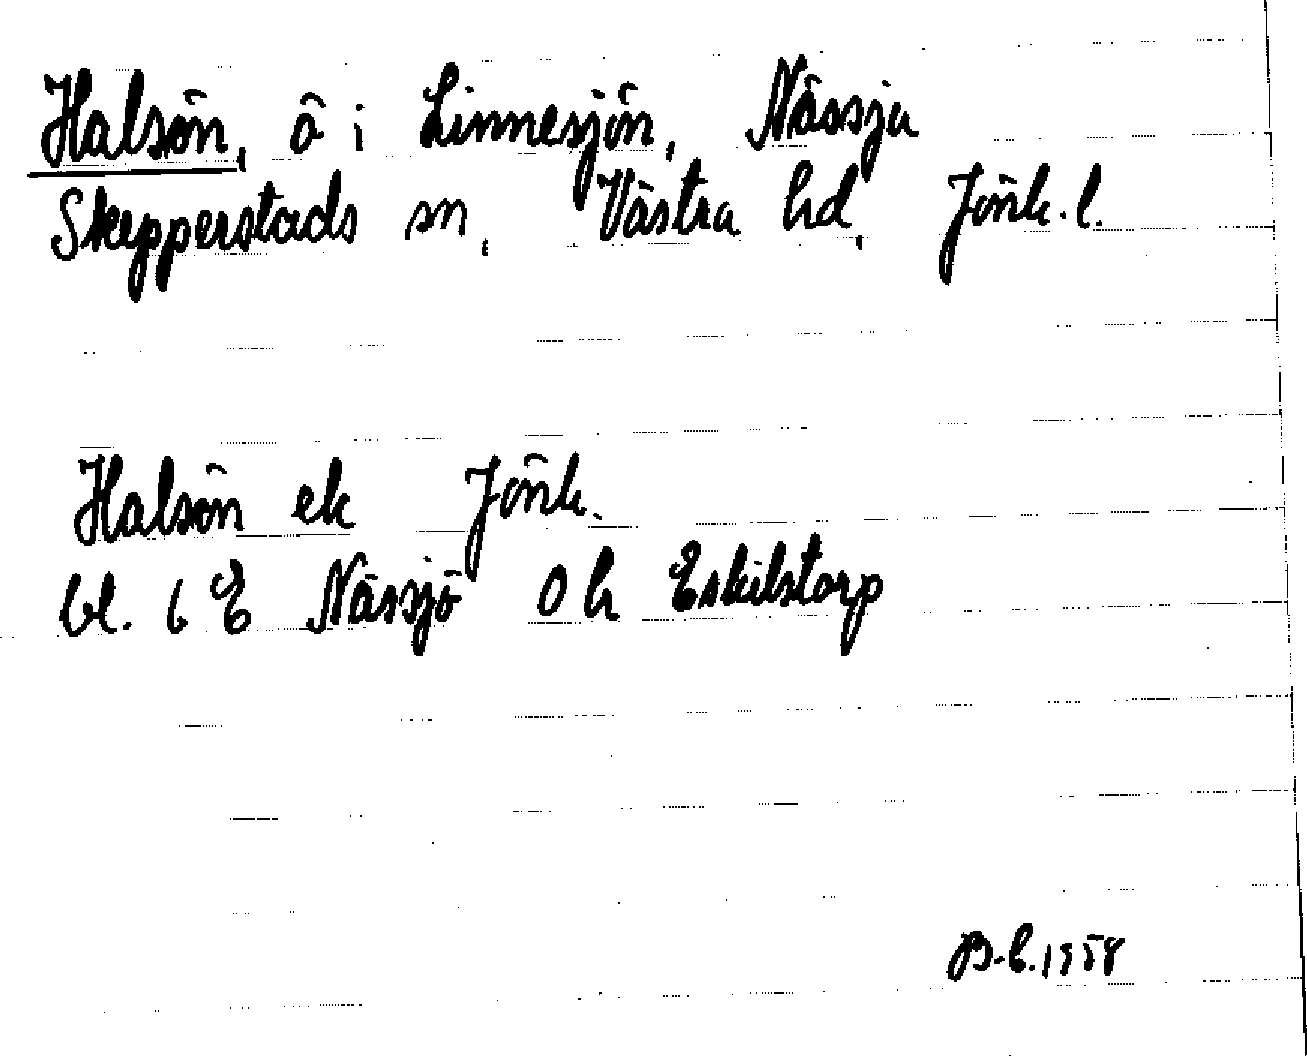 Halsön, ö i Linnesjön, Nässja
Skepperstads sn, Västra hd, Jönk. l.
Halsön ek Jönk.
bl. 6 E Nässjö och Eskilstorp
B-b. 1958